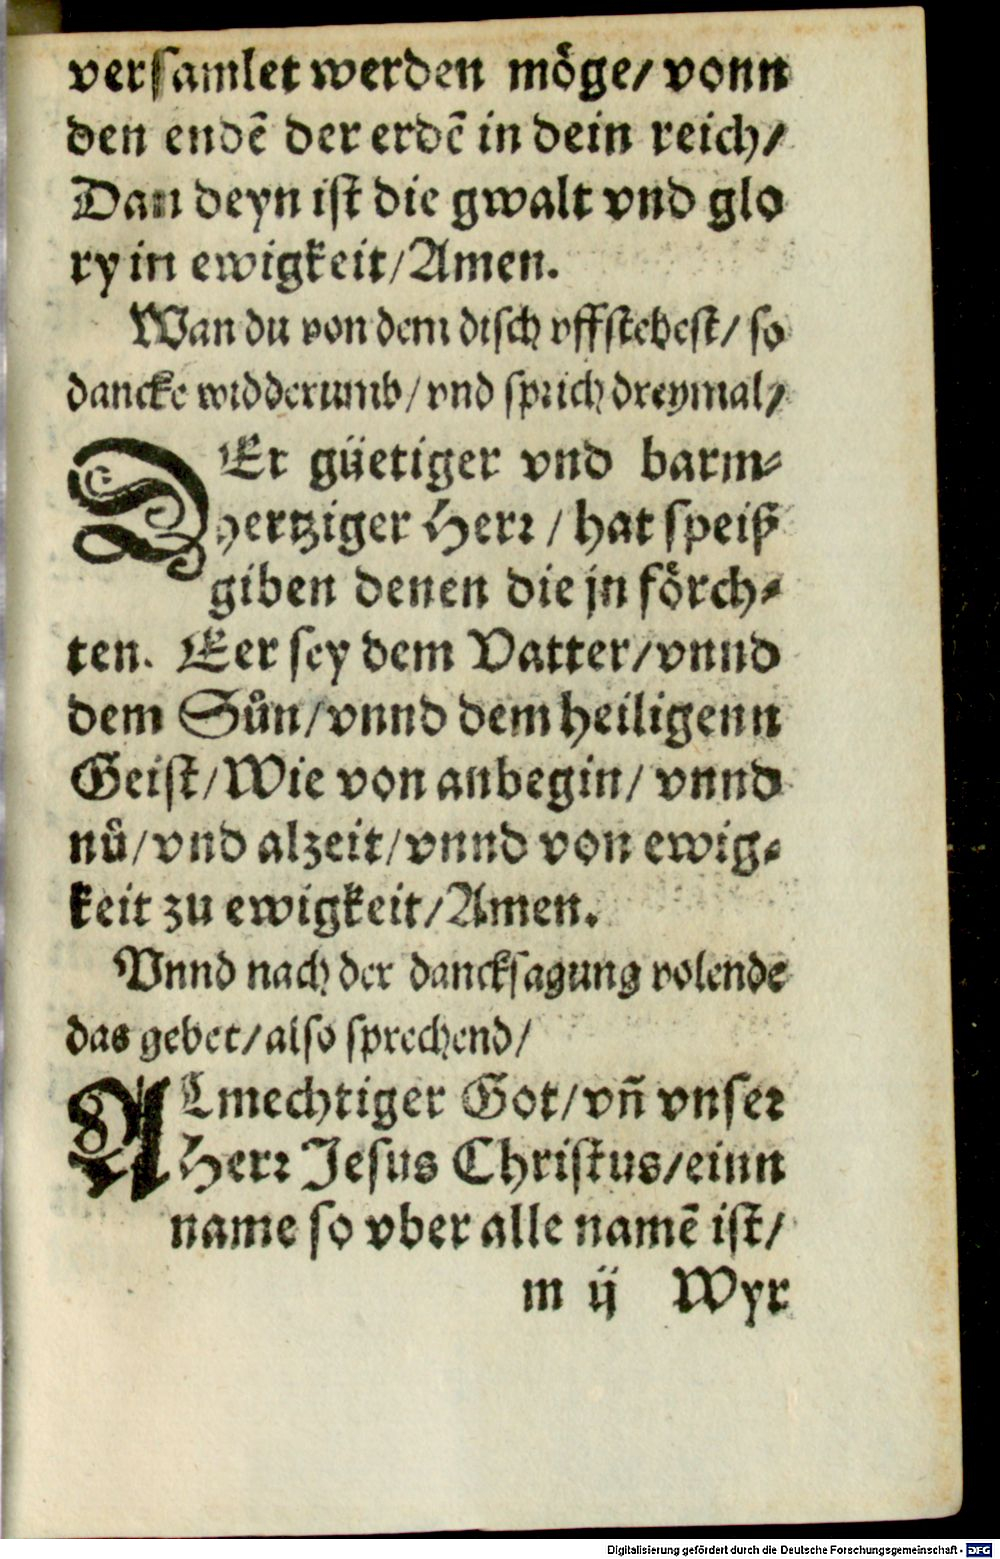 versamlet werden möge/ vonn
den endē der erdē in dein reich/
Dan deyn ist die gwalt vnd glo
ry in ewigkeit/Amen.
Wan du von dem disch vffstehest/ so
dancke widderumb/ vnd sprich dreymal/
DEr güetiger vnd barm⸗
hertziger Herr / hat speiß
giben denen die jn förch⸗
ten. Eer sey dem Vatter/vnnd
dem Sůn/vnnd dem heiligenn
Geist/Wie von anbegin/ vnnd
nů/vnd alzeit/vnnd von ewig⸗
keit zu ewigkeit/Amen.
Vnnd nach der dancksagung volende
das gebet/also sprechend/
ALmechtiger Got/vñ vnser
Herr Jesus Christus/einn
name so vber alle namē ist/
m ij Wyr
Digitalisierung gefördert durch die Deutsche Forschungsgemeinschaft - DFG